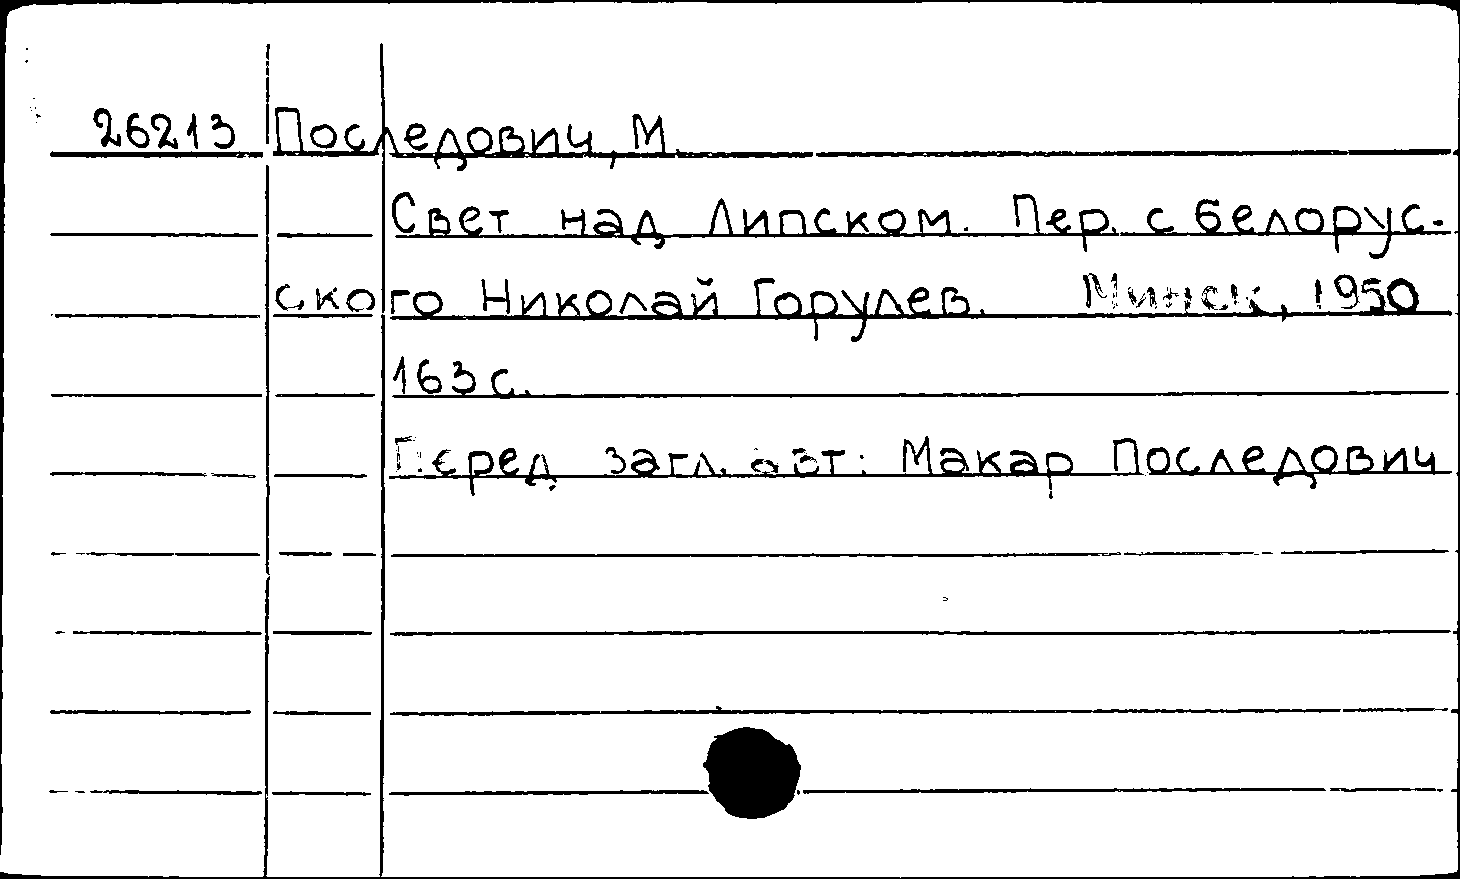 26213 Последович, М.
Свет над Липском. Пер. с белорус-
ского Николай Горулев. Минск, 1950
163 с.
Перед загл. авт: Макар Последович